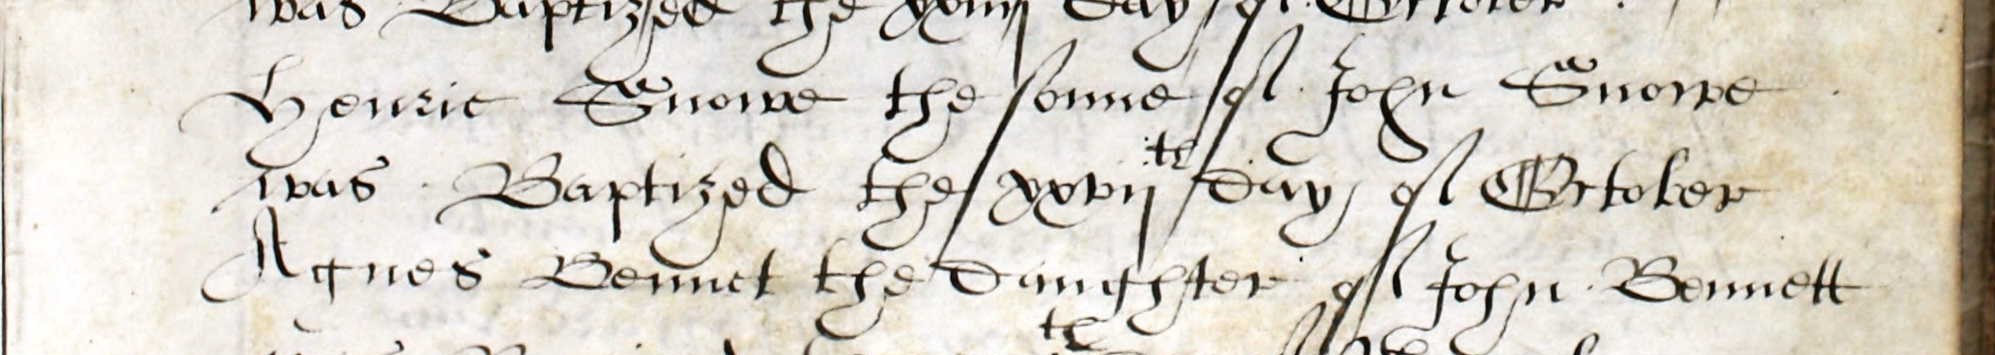 was Baptized the xxviij day of October
Henrie Snowe the sonne of John Snowe
was Baptized the xxvijth day of October
Agnes Bennet the Daughter of John Bennett
th